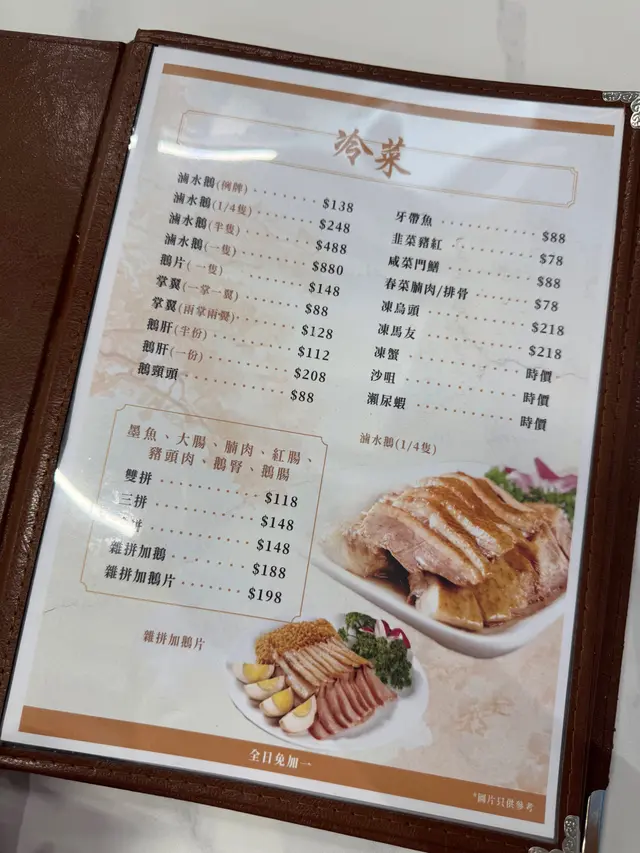 冷菜
滷水鵝(例牌) $138
滷水鵝(1/4隻) $248
滷水鵝(半隻) $488
滷水鵝(一隻) $880
鵝片(一隻) $148
掌翼(一掌一翼) $88
掌翼(兩掌兩翼) $128
鵝肝(半份) $112
鵝肝(一份) $208
鵝頸頭 $88
牙帶魚 $88
韭菜豬紅 $78
咸菜門鱔 $88
春菜腩肉/排骨 $78
凍烏頭 $218
凍馬友 $218
凍蟹 時價
沙咀 時價
瀨尿蝦 時價
墨魚、大腸、腩肉、紅腸、
豬頭肉、鵝腎、鵝腸
雙拼 $118
三拼 $148
拼 $148
雜拼加鵝 $188
雜拼加鵝片 $198
滷水鵝(1/4隻)
雜拼加鵝片
全日免加一
*圖片只供參考